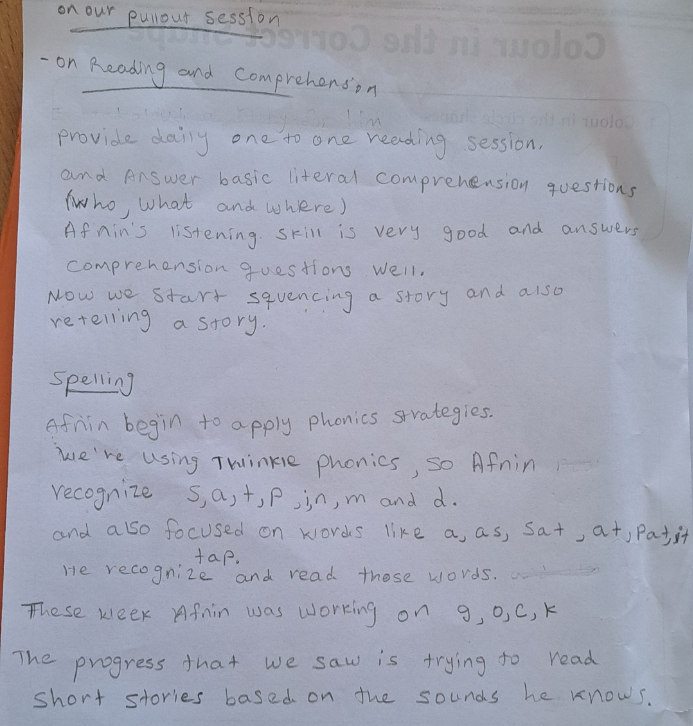 on our pullout session
- on Reading and Comprehension
provide daily one to one reading session.
and Answer basic literal comprehension questions
(who, what and where)
Afnin's listening skill is very good and answers
comprehension questions well.
Now we start squencing a story and also
retelling a story.
Spelling
Afnin begin to apply phonics strategies.
we're using Twinkle phonics, so Afnin
recognize s, a, t, p, i, n, m and d.
and also focused on words like a, as, sat, at, pat, it
tap.
He recognize and read those words.
These week Afnin was working on g, o, c, k
The progress that we saw is trying to read
short stories based on the sounds he knows.